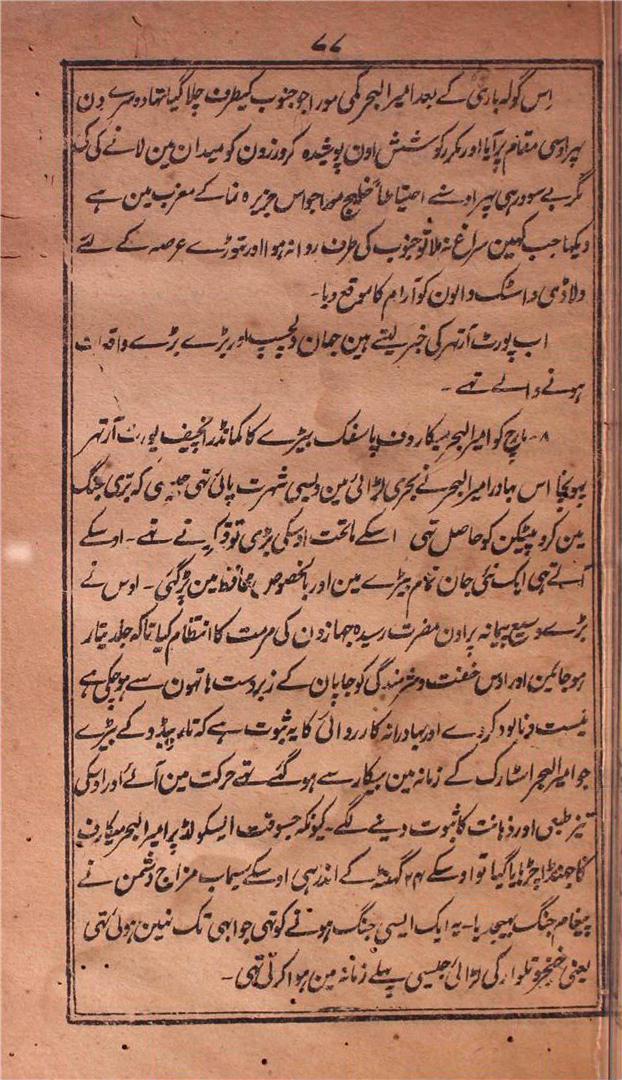 ۷۷
اِس گولہ باری کے بعد امیر البحر کمی مورا جو جنوب کیطرف چلا گیا تہا دوسرے دن
پہر اوسی مقام پر آیا اور مکرر کوشش اون پوشدہ کروزرون کو میدان مین لانے کی کی
مگر بے سود رہی پہر اوسنے احتیاطاً خلیج مورا جو اس جزیرہ نما کے مغرب مین ہے
دیکہا جب کہین سراغ نہ ملا تو جنوب کی طرف روانہ ہوا اور تہوڑے عرصہ کے لئے
ولاڈی واسٹک والون کو آرام کا موقع دیا۔
اب پورٹ آرتہر کی خبر لیتے ہین جہان دلچسپ اور بڑے بڑے واقعات
ہونے والے تہے ۔
۸۔ مارچ کو امیر البحر میکاروف پاسفک بیڑے کا کمانڈر انچیف پورٹ آرتہر
پہونچا اس بہادر امیر البحر نے بحری لڑائی مین ویسی شہرت پائی تہی جیسی کہ برّی جنگ
مین کروپیٹکن کو حاصل تہی اسکے ماتحت اوسکی بڑی توقیر کرتے تہے ۔ اوسکے
آتے ہی ایک نئی جان تمام بیڑے مین اور بالخصوص محافظ مین پڑ گئی ۔ اوس نے
بڑے وسیع پیمانہ پر اون مضرت رسیدہ جہازون کی مرمت کا انتظام کیا تاکہ جلد تیار
ہو جائین اور اوس خفت و شرمندگی کو جاپان کے زبردست ہاتہون سے ہو چکی ہے
نیست و نابود کر دے اور بہادرانہ کارروائی کا یہ ثبوت ہے کہ تارپیڈو کے بیڑے
جو امیر البحر اسٹارک کے زمانہ مین بیکار سے ہو گئے تہے حرکت مین آئے اور اوسکی
تیز طبعی اور ذہانت کا ثبوت دینے لگے ۔ کیونکہ جسوقت ایسکولڈ پر امیر البحر میکارف
کا جہنڈا چڑہایا گیا تو اوسکے ۲۴ گہنٹہ کے اندر ہی اوسکے سیماب مزاج دشمن نے
پیغام جنگ بہیجدیا ۔ یہ ایک ایسی جنگ ہونے کو تہی جو ابہی تک نہین ہوئی تہی
یعنی خنجر و تلوار کی لڑائی جیسی پہلے زمانہ مین ہوا کرتی تہی ۔